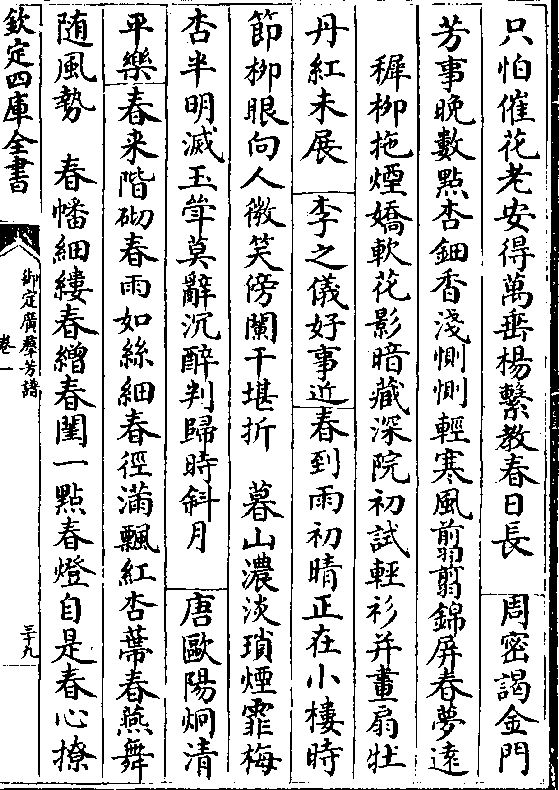 只怕催花老安得萬垂楊繫教春日長　周密謁金門
芳事晚數點杏鈿香淺惻惻輕寒風翦翦錦屏春夢遠
穉柳拖煙嬌軟花影暗藏深院初試輕衫并畫扇牡
丹紅未展　李之儀好事近春到雨初晴正在小樓時
節柳眼向人微笑傍闌干堪折　暮山濃淡瑣煙霏梅
杏半明滅玉斝莫辭沉醉判歸時斜月　唐歐陽炯清
平樂春来階砌春雨如絲細春徑滿飄紅杏蔕春燕舞
随風勢　春幡細縷春繒春閨一點春燈自是春心撩
欽定四庫全書
御定廣羣芳譜
卷一
三十九